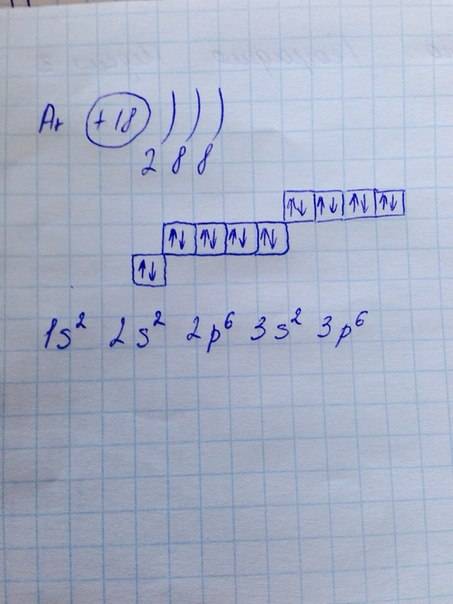 Ar +18 ) ) )
2 8 8
↑↓ ↑↓ ↑↓ ↑↓
↑↓ ↑↓ ↑↓ ↑↓
↑↓
1s² 2s² 2p⁶ 3s² 3p⁶